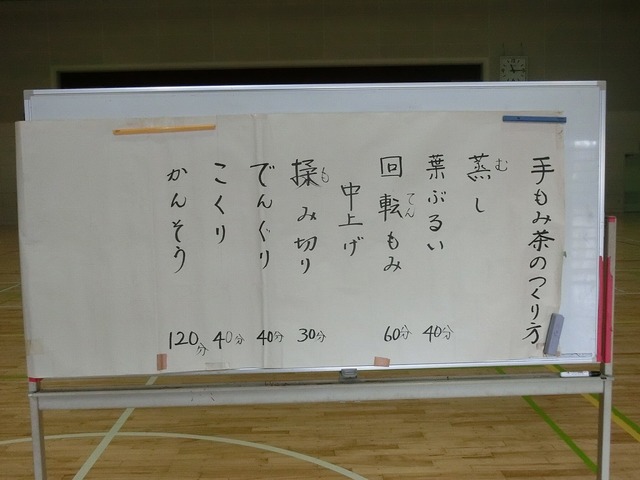 手もみ茶のつくり方
蒸し
む
葉ぶるい 40分
回転もみ 60分
てん
中上げ
揉み切り 30分
も
でんぐり 40分
こくり 40分
かんそう 120分